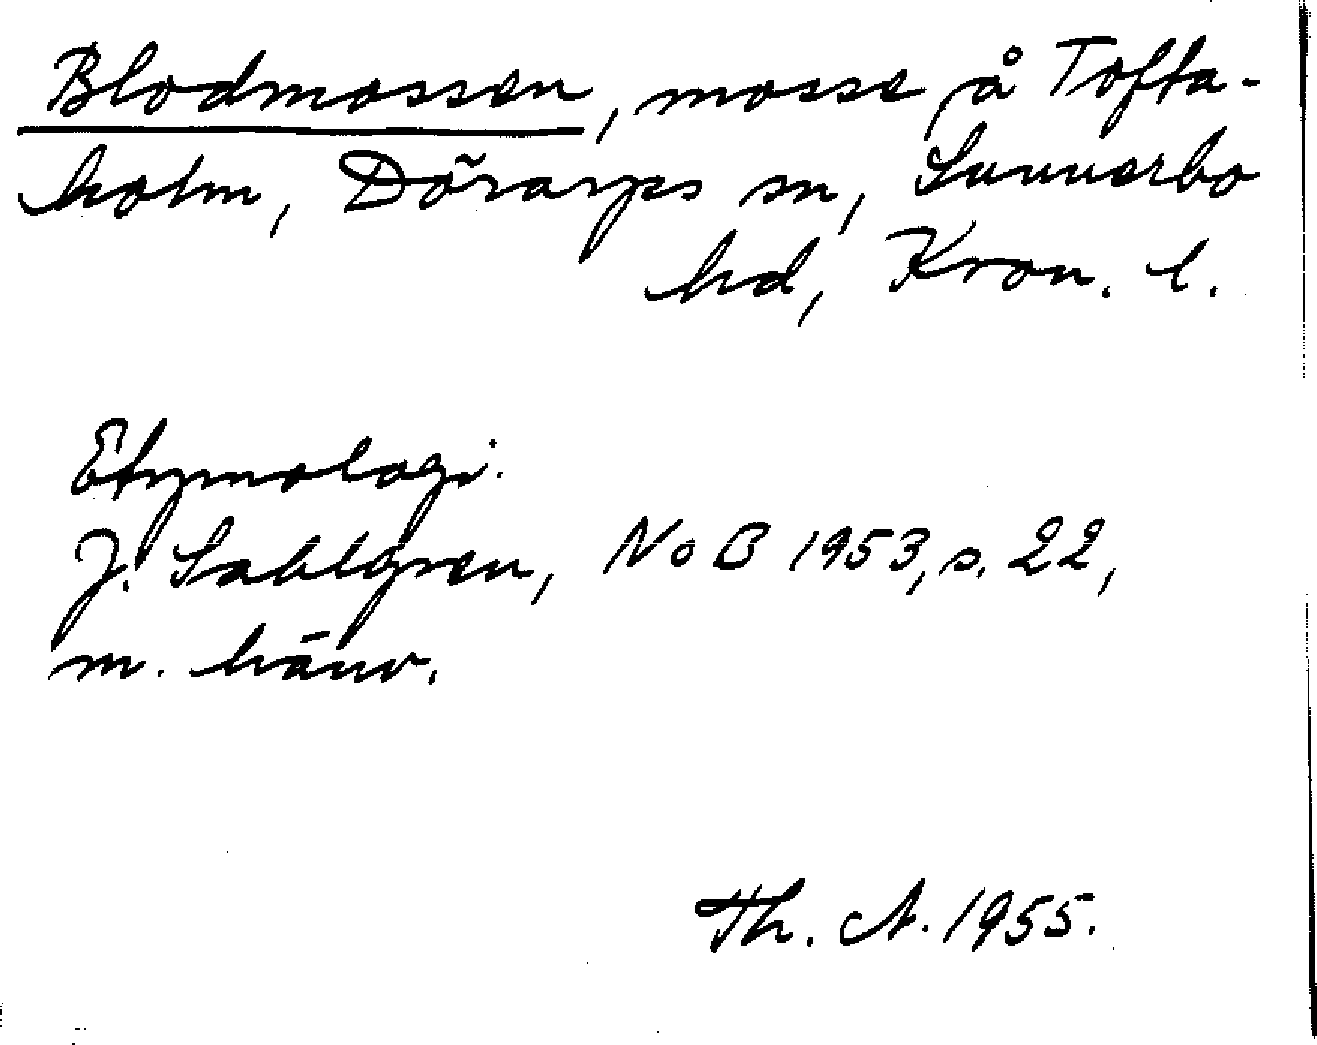 Blodmossen, mosse å Tofta-
holm, Dörarps sn, Sunnerbo
hd, Kron. l.
Etymologi.
J. Sahlgren, NoB 1953, s. 22,
m. hänv.
Th. A. 1955.